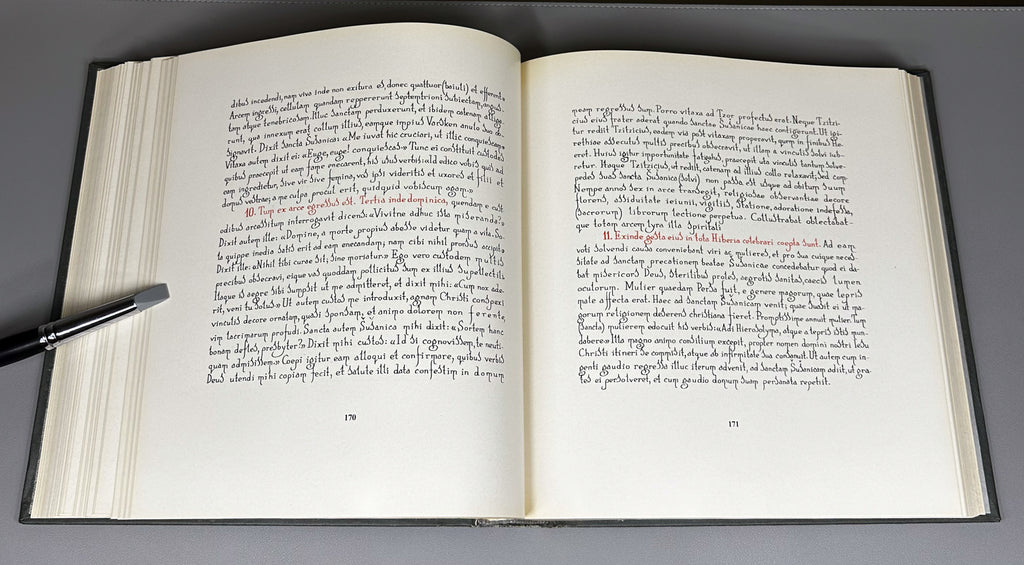 dibus incedendi, nam viva inde non exitura es, donec quattuor (baiuli) et efferent.»
Arcem ingressi, cellulam quandam reppererunt septemtrioni subiectam, angus-
tam atque tenebricosam. Illuc sanctam perduxerunt, et ibidem catenam attige-
runt, qua innexum erat collum illius, eamque impius Varsken anulo suo ob-
signavit. Dixit sancta Susanica: «Me iuvat hic cruciari, ut illic conquiescam.»
Vitaxa autem dixit ei: «Euge, euge! conquiescas.» Tunc ei constituit custodes
quibus praecepit ut eam fame enecarent, his usus verbis: «Id edico vobis quod ad
eam ingredietur, sive vir sive femina, vos ipsi videritis et uxores et filii et
domus vestrae; a me culpa procul erit, quidquid vobiscum agam.»
10. Tum ex arce egressus est. Tertia inde dominica, quendam e cust
odibus arcessitum interrogavit dicens: «Vivitne adhuc ista miseranda?»
Dixit autem ille: «Domine, a morte propius abesse videtur quam a vita. So-
la quippe inedia satis erit ad eam enecandam; nam cibi nihil prorsus accipit.»
Dixit ille: «Nihil tibi curae sit; sine moriatur.» Ego vero custodem multis
precibus obsecravi, eique vas quoddam pollicitus sum ex illius supellectili.
Itaque is aegre sibi sumpsit ut me admitteret, et dixit mihi: «Cum nox ade-
rit, veni tu solus.» Ut autem custos me introduxit, agnam Christi conspexi
vinculis decore ornatam, quasi sponsam, et animo dolorem non ferente,
vim lacrimarum profudi. Sancta autem Susanica mihi dixit: «Sortem hanc
bonam defles, presbyter?» Dixit mihi custos: «Id si cognovissem, te neuti-
quam admisissem.» Coepi igitur eam alloqui et confirmare, quibus verbis
Deus utendi mihi copiam fecit, et salute illi data confestim in domum
170
meam regressus sum. Porro vitaxa ad Tzor profectus erat. Neque Tzitzi-
cius eius frater aderat quando sanctae Susanicae haec contigerunt. Ut igi-
tur rediit Tzitzicius, eadem via post vitaxam properavit, quem in finibus He-
rethiae assecutus multis precibus obsecravit, ut illam a vinculis solvi iub-
eret. Huius igitur opportunitate fatigatus, praecepit uta vinculis tantum solve-
retur. Itaque Tzitzicius, ut rediit, catenam ad illius collo relaxavit; sed com-
pedes suas sancta Susanica (solvi) non passa est usque ad obitum suum
Nempe annos sex in arce transegit, religiosae observantiae decore
florens, assiduitate ieiunii, vigiliis, statione, adoratione indefessa,
(sacrorum) librorum lectione perpetua. Collustrabat oblectabat-
que totam arcem lyra illa spiritali
11. Exinde gesta eius in tota Hiberia celebrari coepta sunt. Ad eam
voti solvendi causa conveniebant viri ac mulieres, et pro sua cuique neces-
sitate ad sanctam precationem beatae Susanicae concedebatur quod ei da-
bat misericors Deus, sterilibus proles, aegrotis sanitas, caecis lumen
oculorum. Mulier quaedam Persa fuit, e genere magorum, quae lepris
male affecta erat. Haec ad sanctam Susanicam venit; quae suasit ei ut ma-
gorum religionem deserens christiana fieret. Promptissime annuit mulier. Tum
(sancta) mulierem edocuit his verbis: «Adi Hierosolyma, atque a lepris istis mun-
dabere.» Ita magno animo consilium excepit, propter nomen domini nostri Iesu
Christi itineri se commisit, atque ab infirmitate sua consanuit. Ut autem cum in-
genti gaudio regressa illuc iterum advenit, ad sanctam Susanicam adiit, ut gra-
tes ei persolveret, et cum gaudio domum suam persanata repetiit.
171